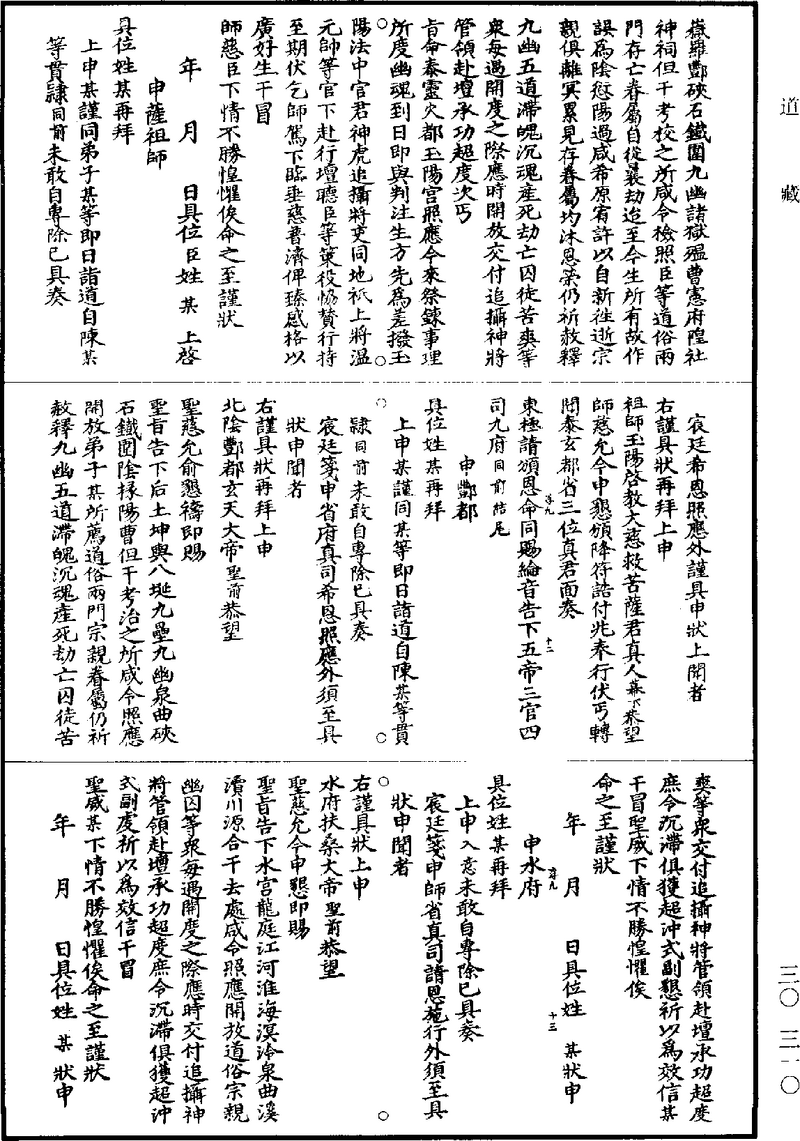 道藏
三〇 三一〇
嶽羅酆硤石鐵圍九幽諸獄殟曹憲府隍社
神祠但干考校之所咸令檢照臣等道俗兩
門存亡眷屬自從曩劫迨至今生所有故作
誤為陰愆陽過咸希原宥許以自新往逝宗
親俱離冥累見存眷屬均沐恩榮仍祈赦釋
九幽五道滯魄沉魂產死劫亡囚徒苦爽等
衆每遇開度之際應時開放交付追攝神將
管領赴壇承功超度次丐
旨命泰靈火都玉陽宮照應今來祭鍊事理
所度幽魂到日即與判注生方先為差撥玉
陽法中官君神虎追攝將吏同地祇上將溫
元帥等官下赴行壇聽臣等策役恊贊行持
至期伏乞師駕下臨垂慈普濟俾臻感格以
廣好生干冒
師慈臣下情不勝惶懼俟命之至謹狀
年 月 日具位臣姓 某 上啓
申薩祖師
具位姓某再拜
上申某謹同弟子某等即日詣道自陳某
等貫隷同前未敢自專除已具奏
宸廷希恩照應外謹具申狀上聞者
右謹具狀再拜上申
祖師玉陽啓教大慈救苦薩君真人幕下恭望
師慈允令申懇頒降符誥付兆奉行伏丐轉
閞泰玄都省三位真君面奏
東極請頒恩命同賜綸音告下五帝三官四
司九府同前結尾
申酆都
具位姓某再拜
上申某謹同某等即日詣道自陳某等貫
隷同前未敢自專除已具奏
宸廷箋申省府真司希恩照應外須至具
狀申聞者
右謹具狀再拜上申
北陰酆都玄天大帝聖前恭望
聖慈允俞懇禱即賜
聖旨告下后土坤輿八埏九壘九幽泉曲硤
石鐵圍陰掾陽曹但干考治之所咸令照應
開放弟子某所薦道俗兩門宗親眷屬仍祈
赦釋九幽五道滯魄沉魂產死劫亡囚徒苦
爽等衆交付追攝神將管領赴壇承功超度
庶令沉滯俱獲超沖式副懇祈以為效信某
干冒聖威下情不勝惶懼俟
命之至謹狀
年 月 日具位姓 某狀申
申水府
具位姓某再拜
上申入意未敢自專除已具奏
宸廷箋申師省真司請恩施行外須至具
狀申聞者
右謹具狀上申
水府扶桑大帝聖前恭望
聖慈允令申懇即賜
聖旨告下水宮龍庭江河淮海溟泠泉曲溪
瀆川源合干去處咸令照應開放道俗宗親
幽囚等衆每遇開度之際應時交付追攝神
將管領赴壇承功超度庶令沉滯俱獲超沖
式副虔祈以為效信干冒
聖威某下情不勝惶懼俟命之至謹狀
年 月 日具位姓 某狀申